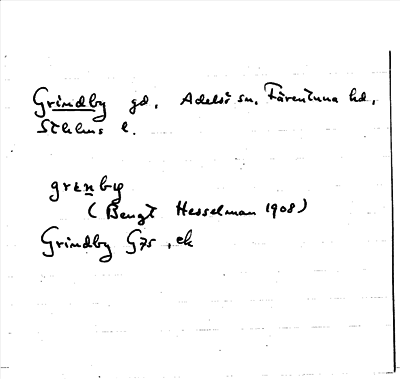 Grindby gd, Adelsö sn, Färentuna hd,
Sthlms l.
grenby
(Bengt Hesselman 1908)
Grindby G75, ek